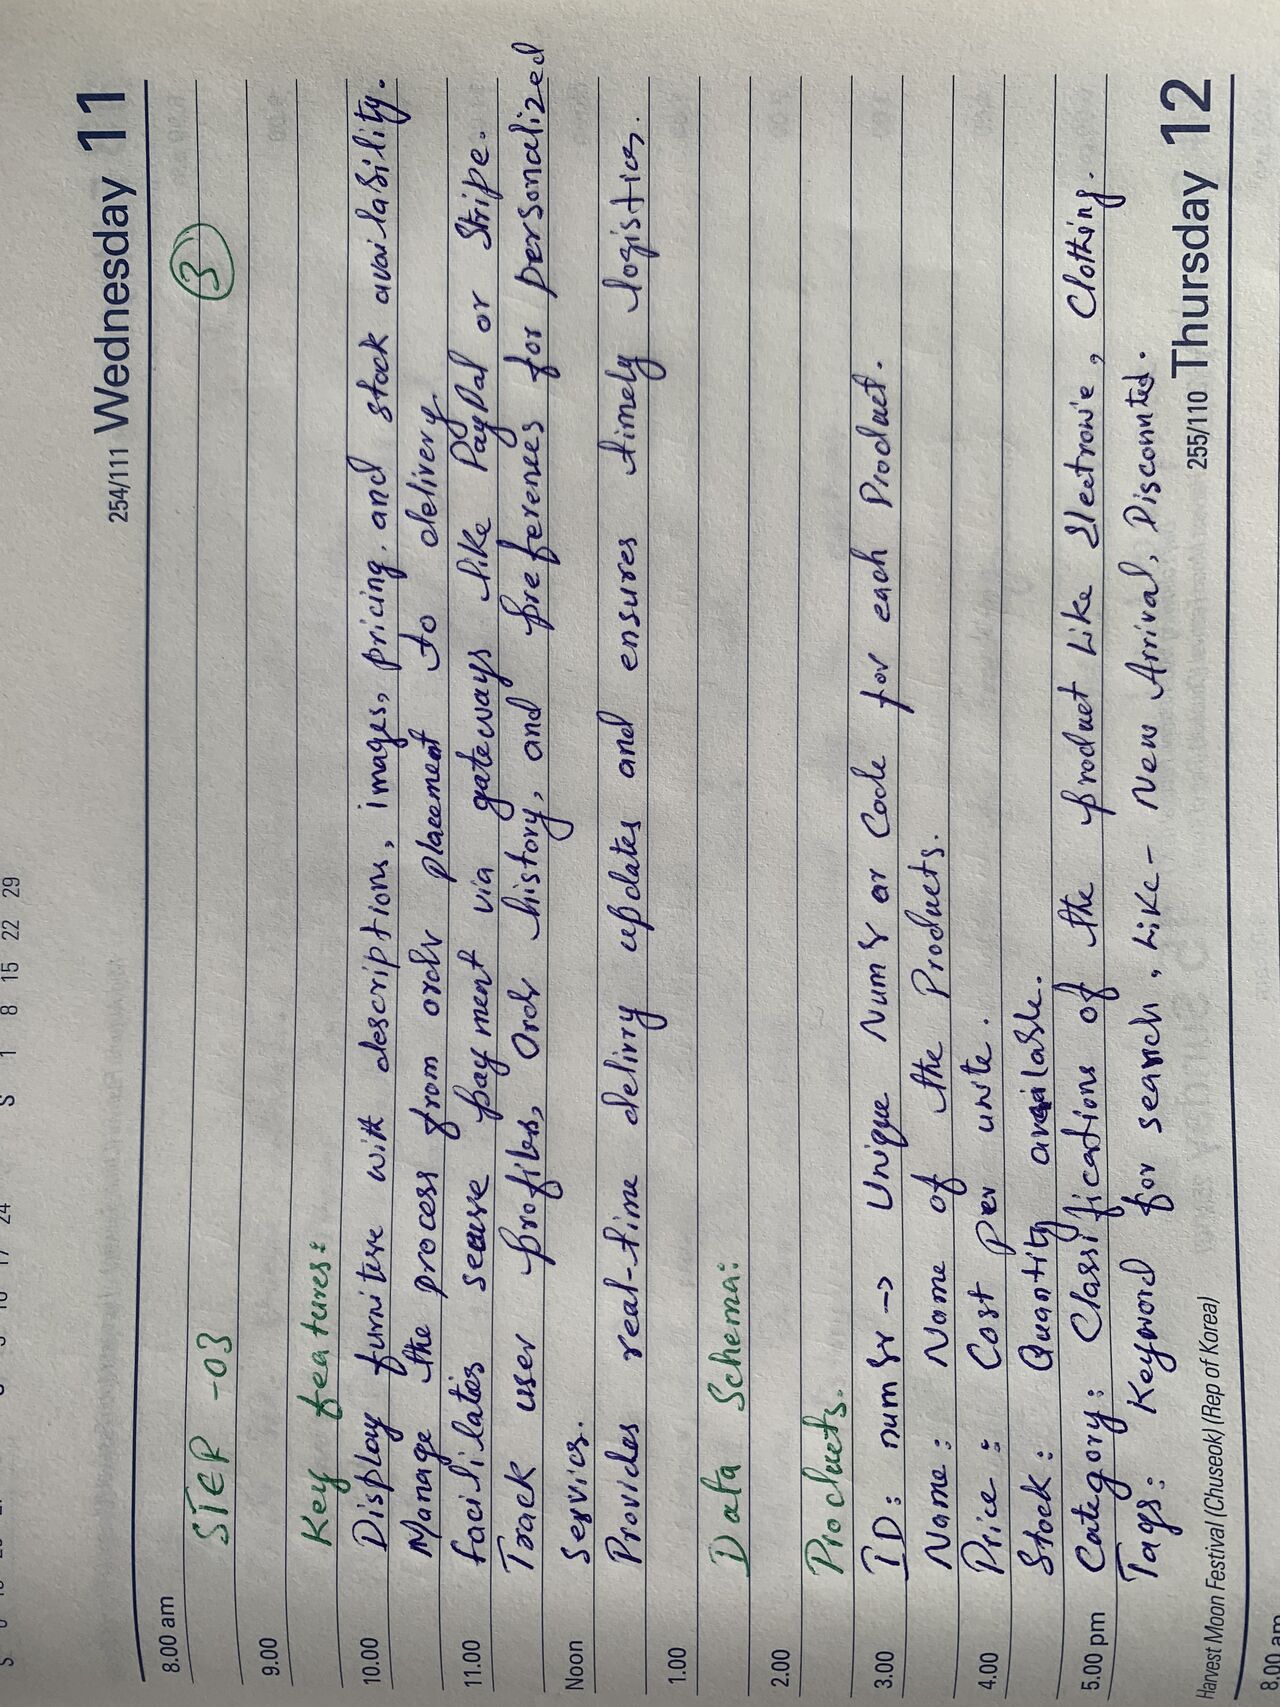 S 1 8 15 22 29
254/111 Wednesday 11
8.00 am
3
STEP -03
9.00
Key features:
10.00 Display furniture with descriptions, images, pricing, and stock availability.
Manage the process from ordr placement to delivery
11.00 facilitates secure payment via gateways like PayPal or Stripe.
Track user profiles, Ordr history, and preferences for personalized
Noon Servics.
Provides real-time delivry updates and ensures timely logistics.
1.00
Data Schema:
2.00
Products.
3.00 ID: numbr → Unique Numbr or Code for each Product.
Name: Name of the Products.
4.00 Price: Cost per unite.
Stock: Quantity available.
5.00 pm Category: Classifications of the product Like Electronic, Clothing.
Tags: Keyword for search, Like - New Arrival, Discounted.
Harvest Moon Festival (Chuseok) (Rep of Korea) 255/110 Thursday 12
8.00 am